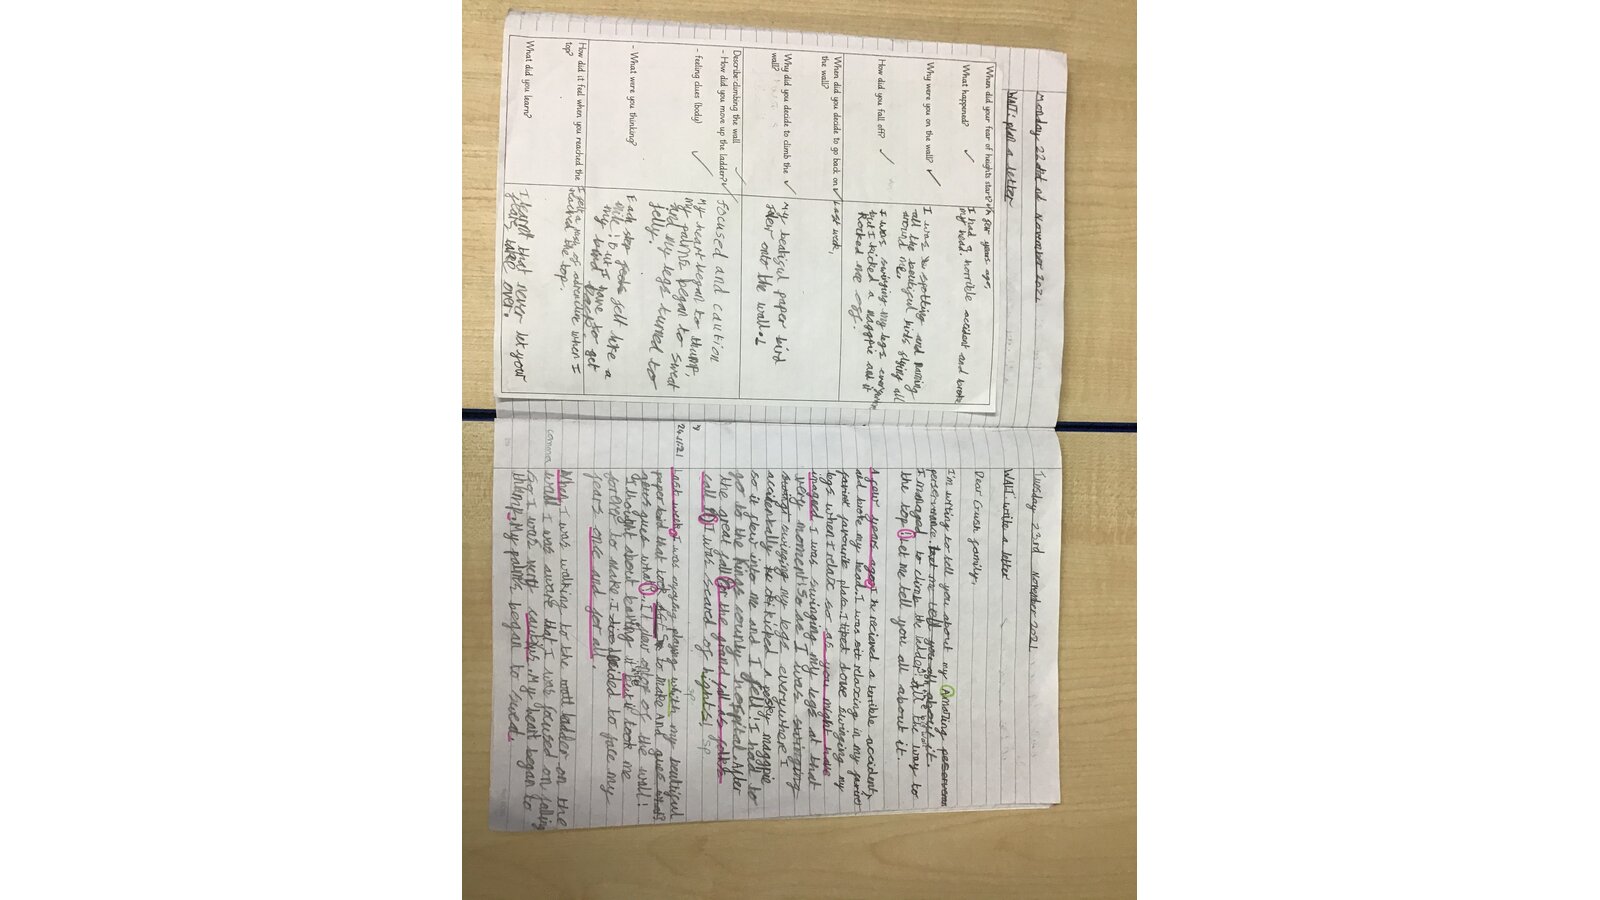 Monday 22nd November 2021
WALT: plan a letter
When did your fear of heights start?
A few years ago,
What happened?
I had a horrible accident and broke
my head.
Why were you on the wall?
I was spotting and
all the beautiful birds flying all
around me.
How did you fall off?
I was swinging my legs everywhere
but I kicked a magpie and it
Rocked me off.
When did you decide to go back on
the wall?
Last week,
Why did you decide to climb the
wall?
My beatiful paper bird
flew onto the wall.
Describe climbing the wall
- How did you move up the ladder?
focused and caution
- feeling clues (body)
My heart began to thump,
my palms began to sweat
and my legs turned to
jelly.
- What were you thinking?
Each step felt like a
mile but I have to get
my bird
How did it feel when you reached the
top?
I felt a of adventure when I
reached the top.
What did you learn?
I learnt that never let your
fears take over.
Tuesday 23rd November 2021
WALT: write a letter
Dear Crush family,
I'm writing to tell you about my Amazing
I managed to climb the ladder all the way to
the top! Let me tell you all about it.
A few years ago, I recieved a terrible accident,
and broke my head. I was relaxing in my
favourite place. I liked swinging my
legs when I relax so as you might have
I was swinging my legs at that
very moment! So as I was
swinging my legs everywhere I
accidentally kicked a pesky magpie
so it flew into me and I fell! I had to
go to the kings county hospital. After
the great fall
call it) I was scared of hights! sp
24.11.21
Last week, I was enjoying playing with my beatiful
paper bird that took to make And
gues what? It flew onto of the wall!
I thought about leaving it but it took me
forever to make. I decided to face my
fears once and for all.
When I was walking to the ladder on the
comma
wall I was aware that I was focused on falling
So I was very . My heart began to
thump. My palms began to sweat.